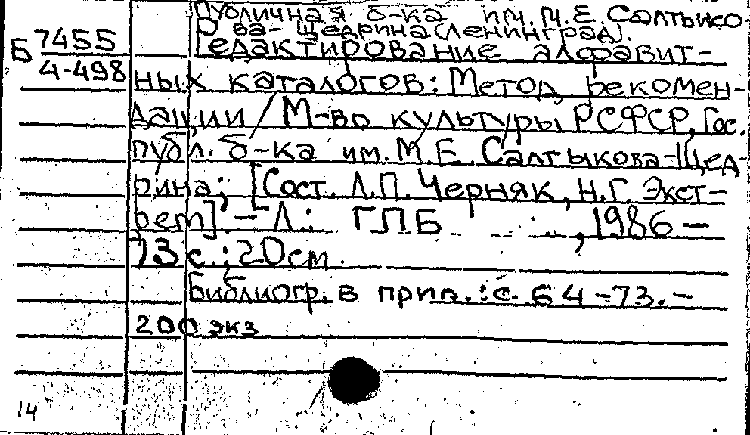 Публичная б-ка им. М.Е. Салтыко
ва-Щедрина (Ленинград).
Б 7455
4-498
Редактирование алфавит-
ных каталогов: Метод. рекомен-
дации / М-во культуры РСФСР, Гос.
публ. б-ка им. М.Е. Салтыкова-Щед-
рина; [Сост. Л.П. Черняк, Н.Г. Экст-
рем]. - Л.: ГПБ , 1986 -
73 с.; 20 см.
Библиогр. в прил.: с. 64-73. -
200 экз
14